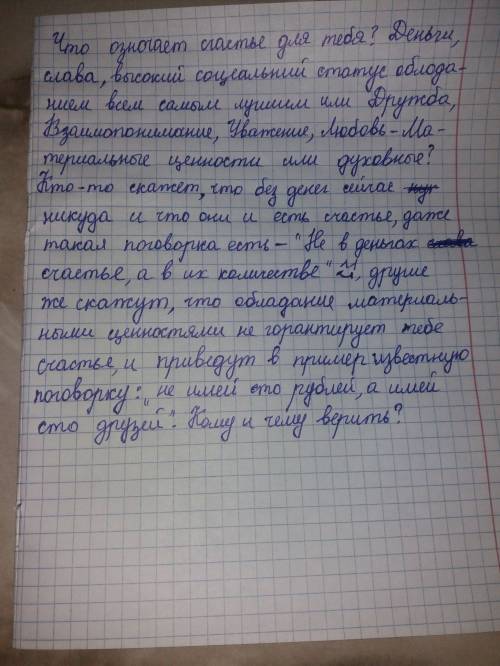 Что означает счастье для тебя? Деньги,
слава, высокий социальний статус облода-
нием всем самым лучшем или Дружба,
Взаимопонимание, Уважение, Любовь-Ма-
териальные ценности или духовные?
Кто-то скажет, что без денег сейчас
никуда и что они и есть счастье, даже
такая поговорка есть – "Не в деньгах
счастье, а в их количестве", другие
же скажут, что обладание материаль-
ными ценностями не горантирует тебе
счастье, и приведут в пример известную
поговорку: „не имей сто рублей, а имей
сто друзей". Кому и чему верить?